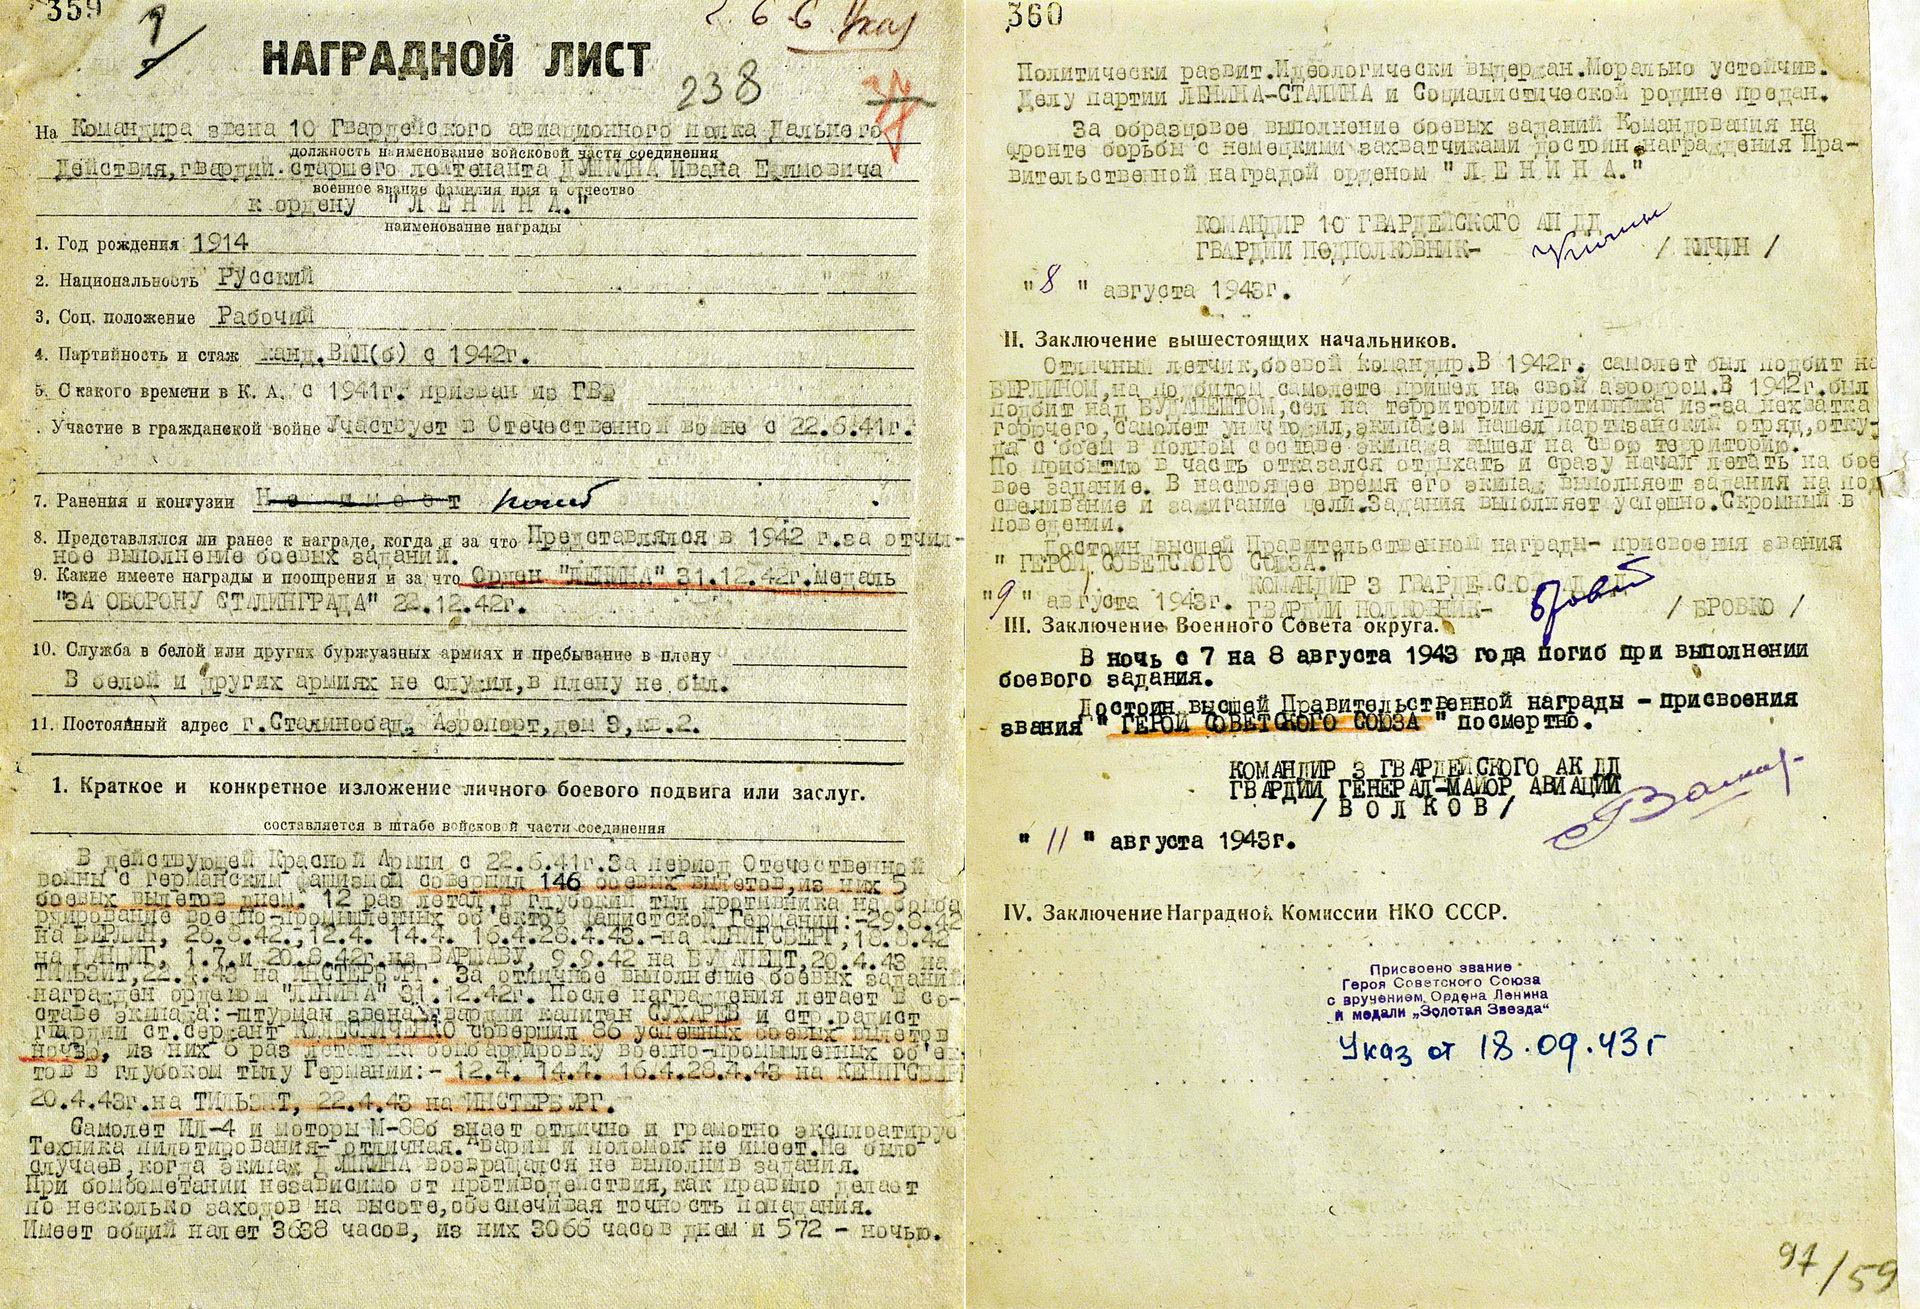 359
НАГРАДНОЙ ЛИСТ
238
На Командира звена 10 Гвардейского авиационного полка Дальнего
должность наименование войсковой части соединения
Действия, гвардии старшего лейтенанта ДУШКИНА Ивана Ефимовича
военное звание фамилия имя и отчество
к ордену "ЛЕНИНА."
наименование награды
1. Год рождения 1914
2. Национальность Русский
3. Соц. положение Рабочий
4. Партийность и стаж канд.ВКП(б) с 1942г.
5. С какого времени в К. А. с 1941г. призван из ГВФ
. Участие в гражданской войне Участвует в Отечественной войне с 22.6.41г.
7. Ранения и контузии Не имеет погиб
8. Представлялся ли ранее к награде, когда и за что Представлялся в 1942 г.за отлич-
ное выполнение боевых заданий.
9. Какие имеете награды и поощрения и за что Орден "ЛЕНИНА" 31.12.42г.медаль
"ЗА ОБОРОНУ СТАЛИНГРАДА" 22.12.42г.
10. Служба в белой или других буржуазных армиях и пребывание в плену
В белой и других армиях не служил,в плену не был.
11. Постоянный адрес г.Сталинабад, Аэропорт,дом 9,кв.2.
1. Краткое и конкретное изложение личного боевого подвига или заслуг.
составляется в штабе войсковой части соединения
В действующей Красной Армии с 22.6.41г.За период Отечественной
войны с германским фашизмом совершил 146 боевых вылетов,из них 5
боевых вылетов днем. 12 раз летал в глубокий тыл противника на бомба
рдирование военно-промышленных об'ектов фашистской Германии:-29.8.42
на БЕРЛИН, 26.8.42.,12.4. 14.4. 16.4.28.4.43.-на КЕНИГСБЕРГ,18.8.42
на ДАНЦИГ, 1.7.и 20.8.42г.на ВАРШАВУ, 9.9.42 на БУДАПЕШТ,20.4.43 на
ТИЛЬЗИТ,22.4.43 на ИНСТЕРБУРГ. За отличное выполнение боевых заданий
награжден орденом "ЛЕНИНА" 31.12.42г. После награждения летает в со-
ставе экипажа:-штурман звена гвардии капитан СУХАРЕВ и стр.радист
гвардии ст.сержант КОЛЕСНИЧЕНКО совершил 86 успешных боевых вылетов
ночью, из них 6 раз летал на бомбардировку военно-промышленных об'ек
тов в глубоком тылу Германии:- 12.4. 14.4. 16.4.28.4.43 на КЕНИГСБЕРГ
20.4.43г.на ТИЛЬЗИТ, 22.4.43 на ИНСТЕРБУРГ.
Самолет ИЛ-4 и моторы М-88б знает отлично и грамотно эксплоатируе
Техника пилотирования- отличная. Аварий и поломок не имеет.Не было
случаев,когда экипаж ДУШКИНА возвращался не выполнив задания.
При бомбометании независимо от противодействия,как правило делает
по несколько заходов на высоте,обеспечивая точность попадания.
Имеет общий налет 3638 часов, из них 3066 часов днем и 572 - ночью.
360
Политически развит.Идеологически выдержан.Морально устойчив.
Делу партии ЛЕНИНА-СТАЛИНА и Социалистической родине предан.
За образцовое выполнение боевых заданий Командования на
фронте борьбы с немецкими захватчиками достоин награждения Пра-
вительственной наградой орденом "ЛЕНИНА."
КОМАНДИР 10 ГВАРДЕЙСКОГО АП ДД
ГВАРДИИ ПОДПОЛКОВНИК- / КИЧИН /
"8" августа 1943г.
II. Заключение вышестоящих начальников.
Отличный летчик,боевой командир.В 1942г. самолет был подбит на
БЕРЛИНОМ,на подбитом самолете пришел на свой аэродром.В 1942г.был
подбит над БУДАПЕШТОМ,сел на территории противника из-за нехватка
горючего,самолет уничтожил,экипажем нашел партизанский отряд,отку-
да с боем в полном составе экипажа вышел на свою территорию.
По прибытию в часть отказался отдыхать и сразу начал летать на бое
вое задание. В настоящее время его экипаж выполняет задания на под
свечивание и зажигание цели.Задания выполняет успешно.Скромный в
поведении.
Достоин высшей Правительственной награды- присвоения звания
" ГЕРОЙ СОВЕТСКОГО СОЮЗА."
КОМАНДИР 3 ГВАРДЕЙСКОЙ АД ДД
"9" августа 1943г. ГВАРДИИ ПОЛКОВНИК- / БРОВКО /
III. Заключение Военного Совета округа.
В ночь с 7 на 8 августа 1943 года погиб при выполнении
боевого задания.
Достоин высшей Правительственной награды - присвоения
звания " ГЕРОЙ СОВЕТСКОГО СОЮЗА " посмертно.
КОМАНДИР 3 ГВАРДЕЙСКОГО АК ДД
ГВАРДИИ ГЕНЕРАЛ-МАЙОР АВИАЦИИ
/ВОЛКОВ/
"11" августа 1943г.
IV. Заключение Наградной Комиссии НКО СССР.
Присвоено звание
Героя Советского Союза
с вручением Ордена Ленина
и медали „Золотая Звезда"
Указ от 18.09.43г
97/59